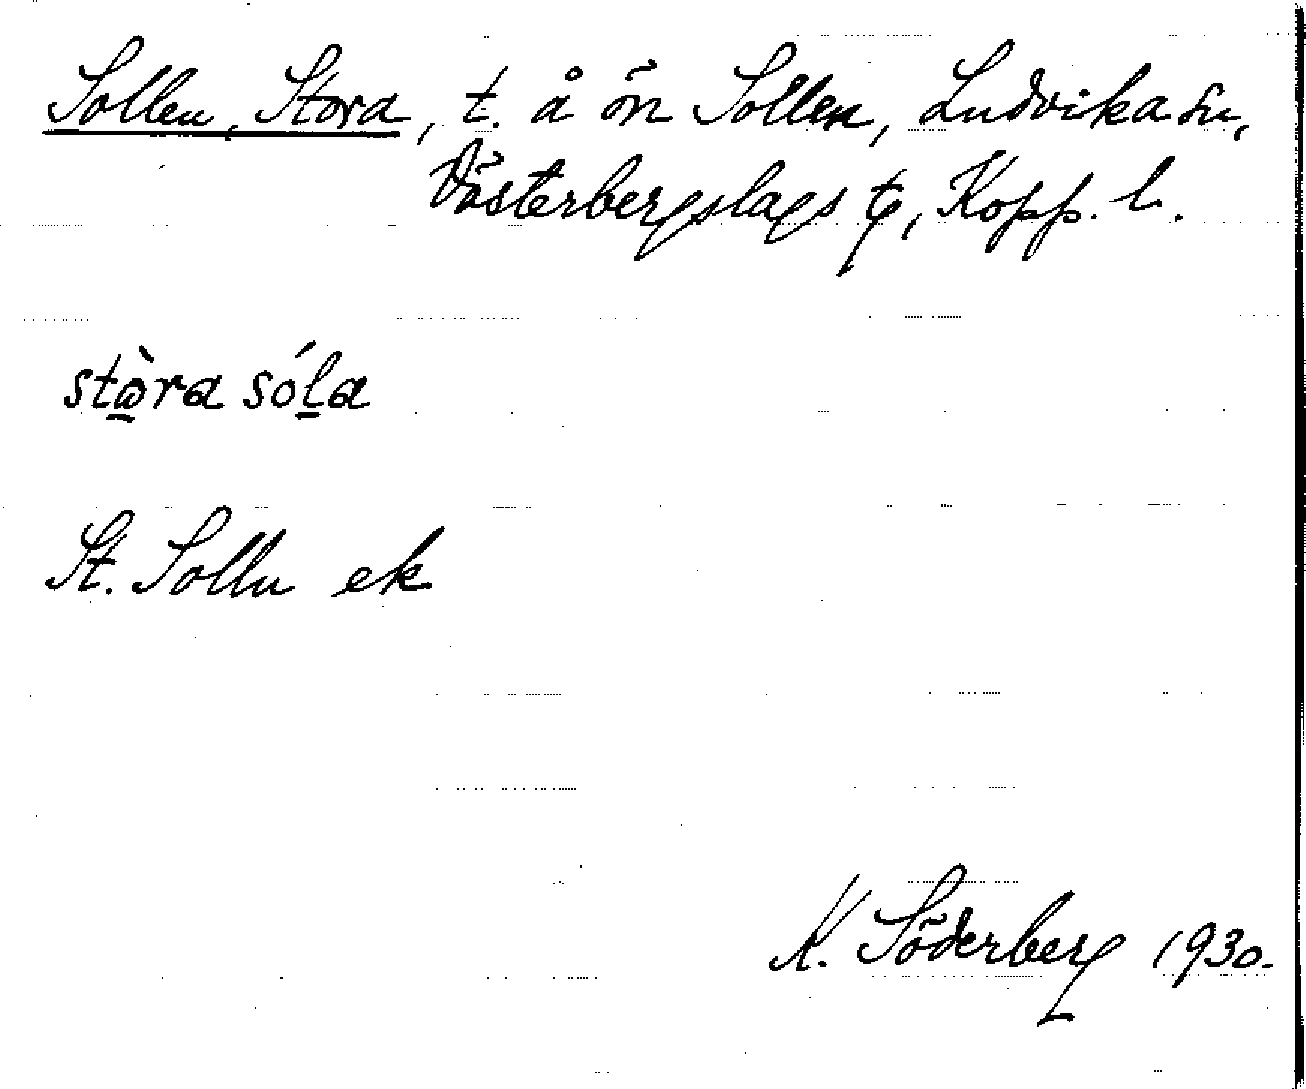 Sollen, Stora, t. å ön Sollen, Ludvika sn,
Västerbergslags tg, Kopp. l.
stɷ̀ra sól̠a
St. Solln ek
K. Söderberg 1930.